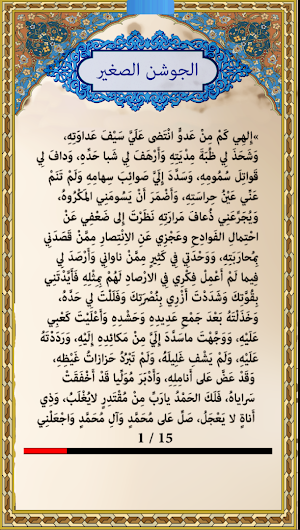 الجوشن الصغير
»إلهِي كَمْ مِنْ عَدوٍّ انْتَضى عَلَيَّ سَيْفَ عَداوَتِهِ،
وَشَحَذَ لِي ظُبَةَ مِدْيَتِهِ وَأَرْهَفَ لِي شَبا حَدِّهِ، وَدافَ لِي
قَواتِلَ سُمُومِهِ، وَسَدَّدَ إلَيَّ صَوائِبَ سِهامِهِ وَلَمْ تَنَمْ
عَنّي عَيْنُ حِراسَتِهِ، وَأَضْمَرَ أَنْ يَسُومَنِي المَكْرُوهَ،
وَيُجَرِّعَنِي ذُعافَ مَرارَتِهِ نَظَرْتَ إلى ضَعْفِي عَنْ
احْتِمالِ الفَوادِحِ وَعَجْزِي عَنِ الانْتِصارِ مِمَّنْ قَصَدَنِي
بِمُحارَبَتِهِ، وَوَحْدَتِي فِي كَثِيرٍ مِمَّنْ ناوانِي وَأَرْصَدَ لِي
فِيما لَمْ أَعْمِلْ فِكْرِي فِي الارْصادِ لَهُمْ بِمِثْلِهِ فَأَيَّدْتَنِي
بِقُوَّتِكَ وَشَدَدْتَ أَزْرِي بِنُصْرَتِكَ وَفَلَلْتَ لِي حَدَّهُ،
وَخَذَلْتَهُ بَعْدَ جَمْعِ عَدِيدِهِ وَحَشْدِهِ وَأَعْلَيْتَ كَعْبِي
عَلَيْهِ، وَوَجَّهْتَ ماسَدَّدَ إلَيَّ مِنْ مَكائِدِهِ إلَيْهِ، وَرَدَدْتَهُ
عَلَيْهِ، وَلَمْ يَشْفِ غَلِيلَهُ، وَلَمْ تَبْرُدْ حَزازاتُ غَيْظِهِ،
وَقَدْ عَضَّ عَلى أَنامِلِهِ، وَأَدْبَرَ مُوَلِّيا قَدْ أَخْفَقَتْ
سَراياهُ، فَلَكَ الحَمْدُ يارَبِّ مِنْ مُقْتَدِرٍ لايُغْلَبُ، وَذِي
أَناةٍ لا يَعْجَلُ، صَلِّ عَلى مُحَمَّدٍ وَآلِ مُحَمَّدٍ وَاجْعَلْنِي
1 / 15